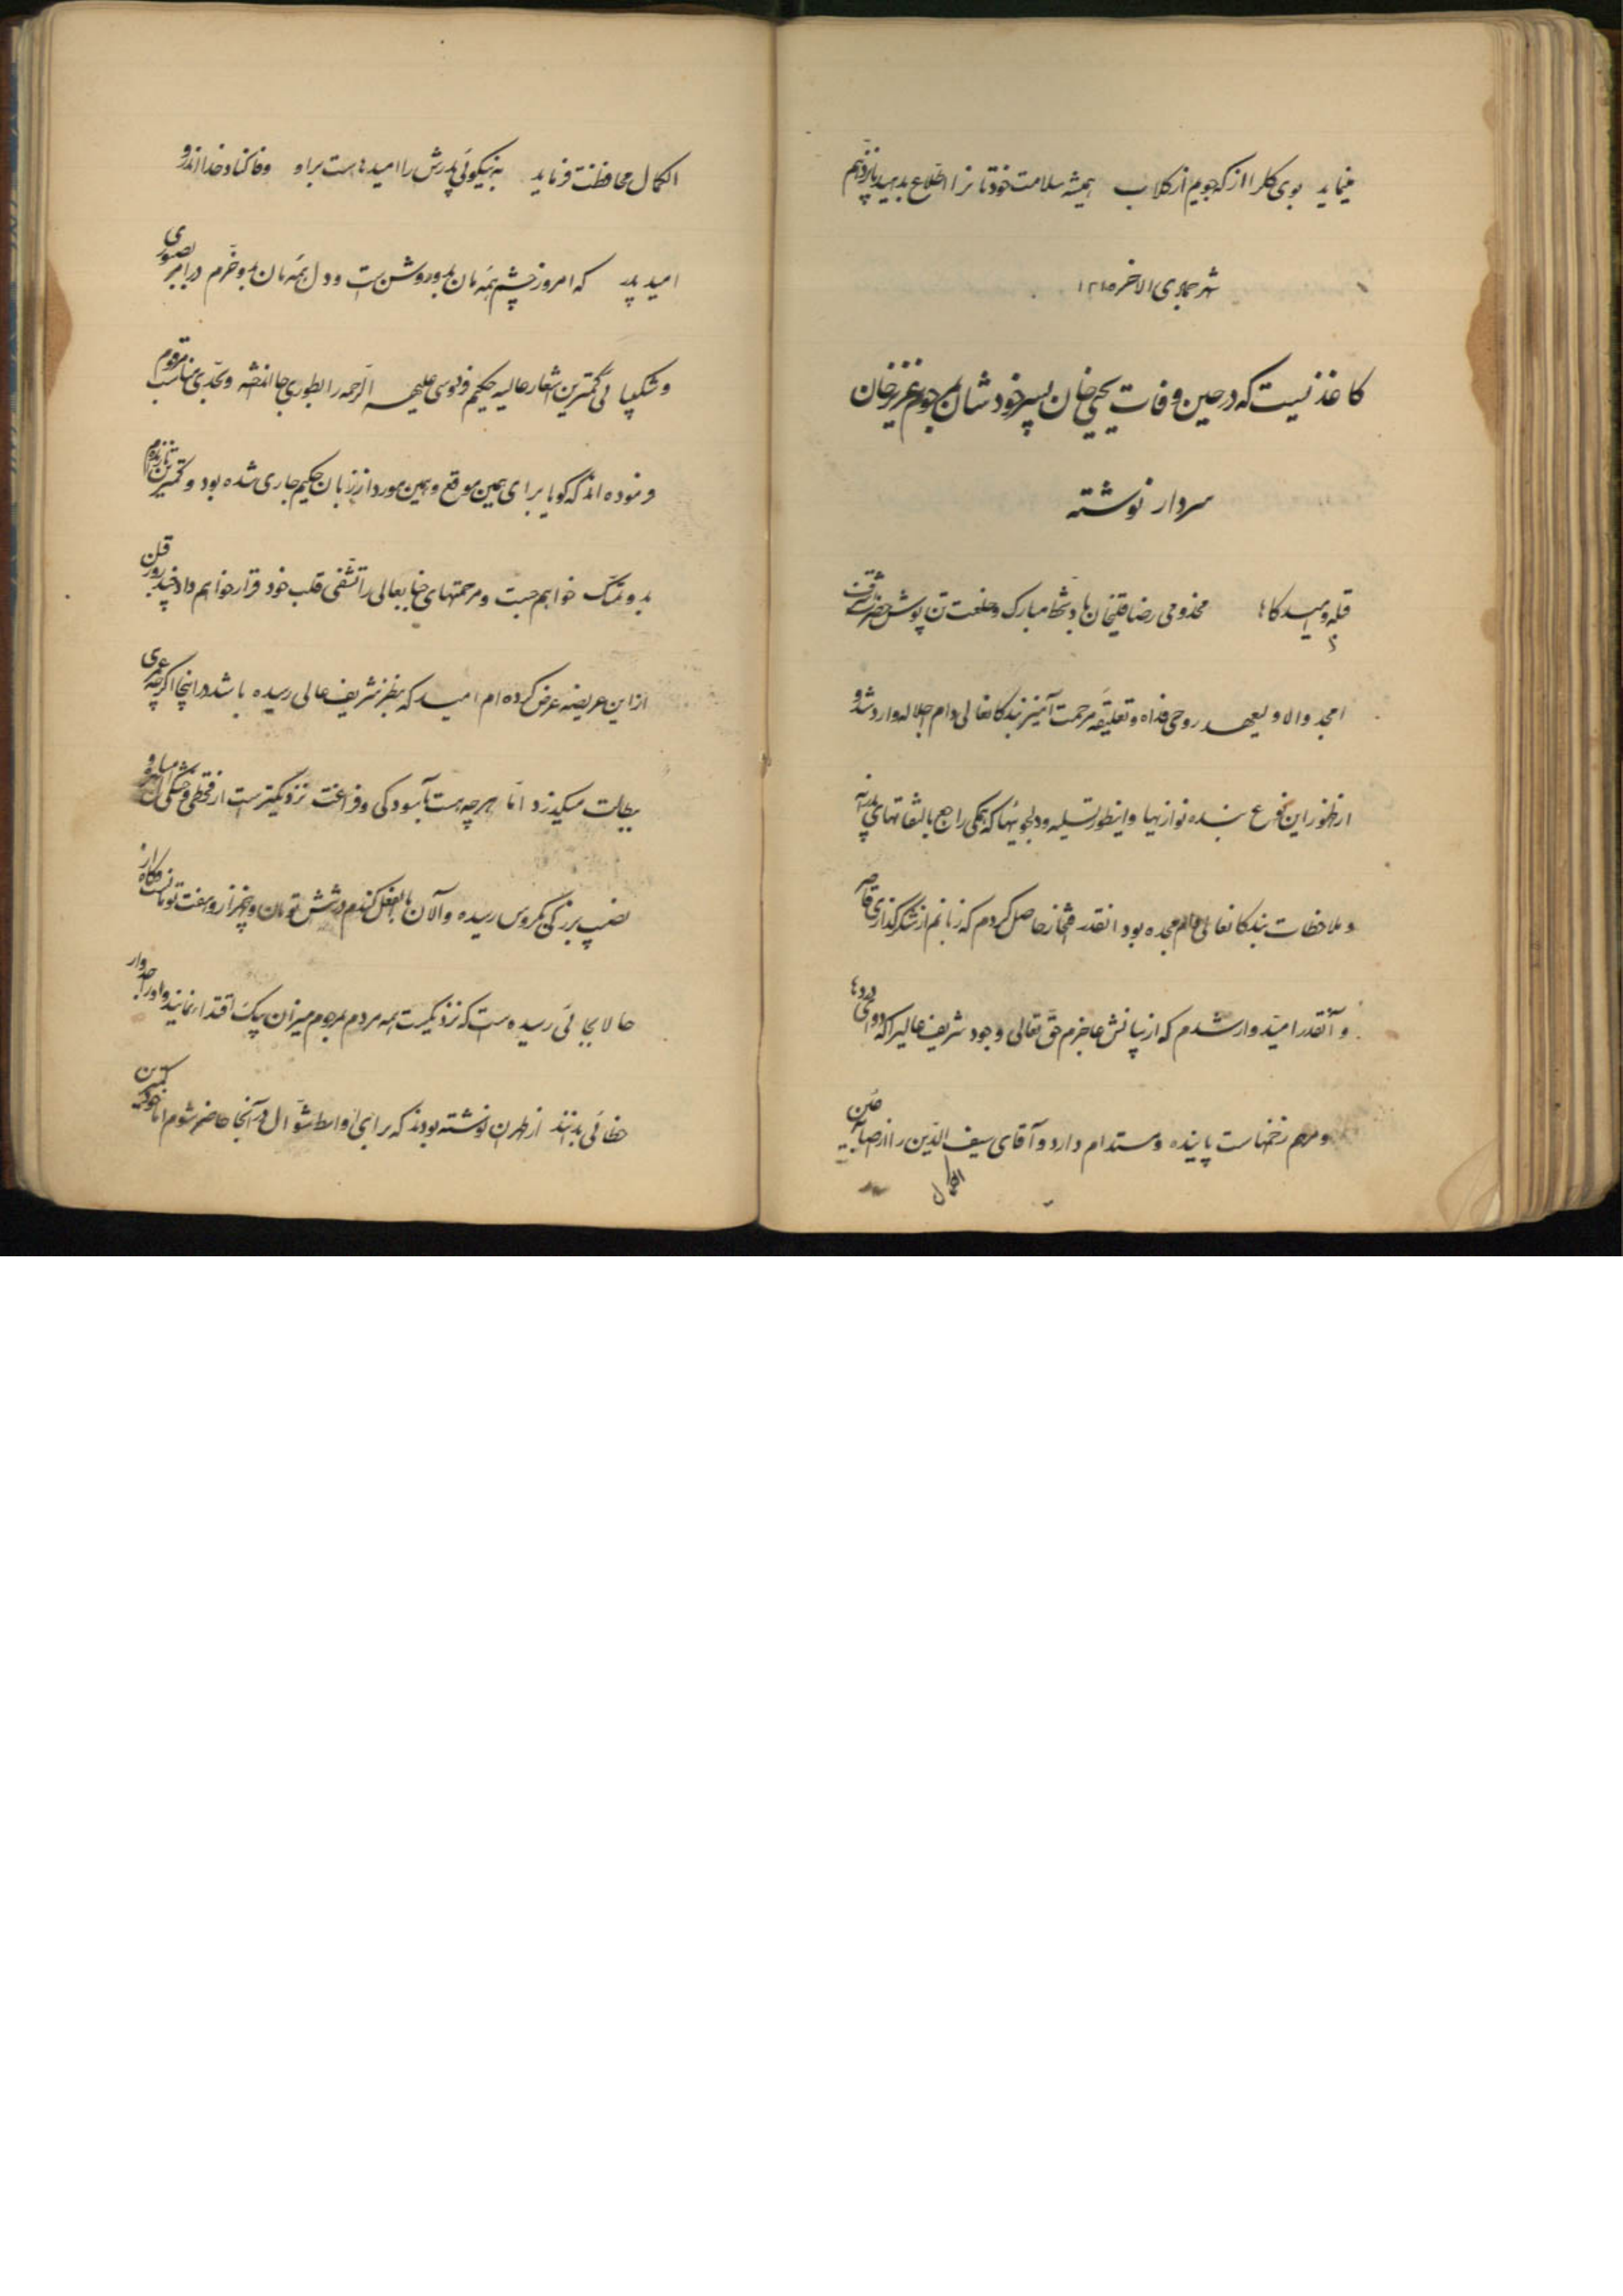 مینماید بوی گلرا از که جویم از گلاب همیشه سلامت خودتانرا اطلاع بدهید پانزدهم
شهر جمادی الاخر ۱۲۸۵
کاغذیست که در حین وفات یحیی خان پسر خودشان بمرحوم عزیز خان
سردار نوشته
قبله و امید گاها مخدومی رضا قلیخان با دستخط مبارک و خلعت تن پوش حضرت
امجد والا ولیعهد روحی فداه و تعلیقه مرحمت آمیز بندگانعالی دام اجلاله وارد شد و
از ظهور این نوع بنده نوازیها و اینطور تسلیه و دلجوئیها که همگی راجع بالتفاتهای پدرانه
و ملاحظات بندگانعالی دام مجده بود انقدر افتخار حاصل کردم که زبانم از شکرگذاری قاصر
و آنقدر امیدوار شدم که از بیانش عاجزم حق تعالی وجود شریف عالیرا که دوای دردها
و مرهم زخمهاست پاینده و مستدام دارد و آقای سیف الدین را از اصابه عین
الکمال
الکمال محافظت فرماید به نیکوئی پدرش را امیدهاست براو وفا کناد خدا اندرو
امید پدر که امروز چشم همه مان بدو روشن است و دل همه مان بدو خرم در امر صبوری
و شکیبائی کمترین اشعار عالیه حکیم فردوسی علیه الرحمه را بطوری بجا انداخته و بحدی مناسب مرقوم
فرموده اند که گویا برای همین موقع و همین مورد از زبان حکیم جاری شده بود و کمترین تا زنده ام
بدو تمسک خواهم جست و مرحمتهای جنابعالی را تشفی قلب خود قرار خواهم داد چند روز قبل
از این عریضه عرض کرده ام امید که بنظر شریف عالی رسیده باشد در اینجا اگرچه عمری
ببطالت میگذرد اما هرچه هست بآسودگی و فراغت نزدیکتر است از قحطی و خشکی
نصیب بزرگی بگروس رسیده و الان بالفعل گندم در شش تومان و پنجهزار و هفت تومانست کاه از
حالا بجائی رسیده است که نزدیکست همه مردم بمرحوم میرزان بیک اقتدا نمایند و او را جد وار
خطائی بدانند از طهران نوشته بودند که برای اواسط شوال در آنجا حاضر شوم اما کمترین